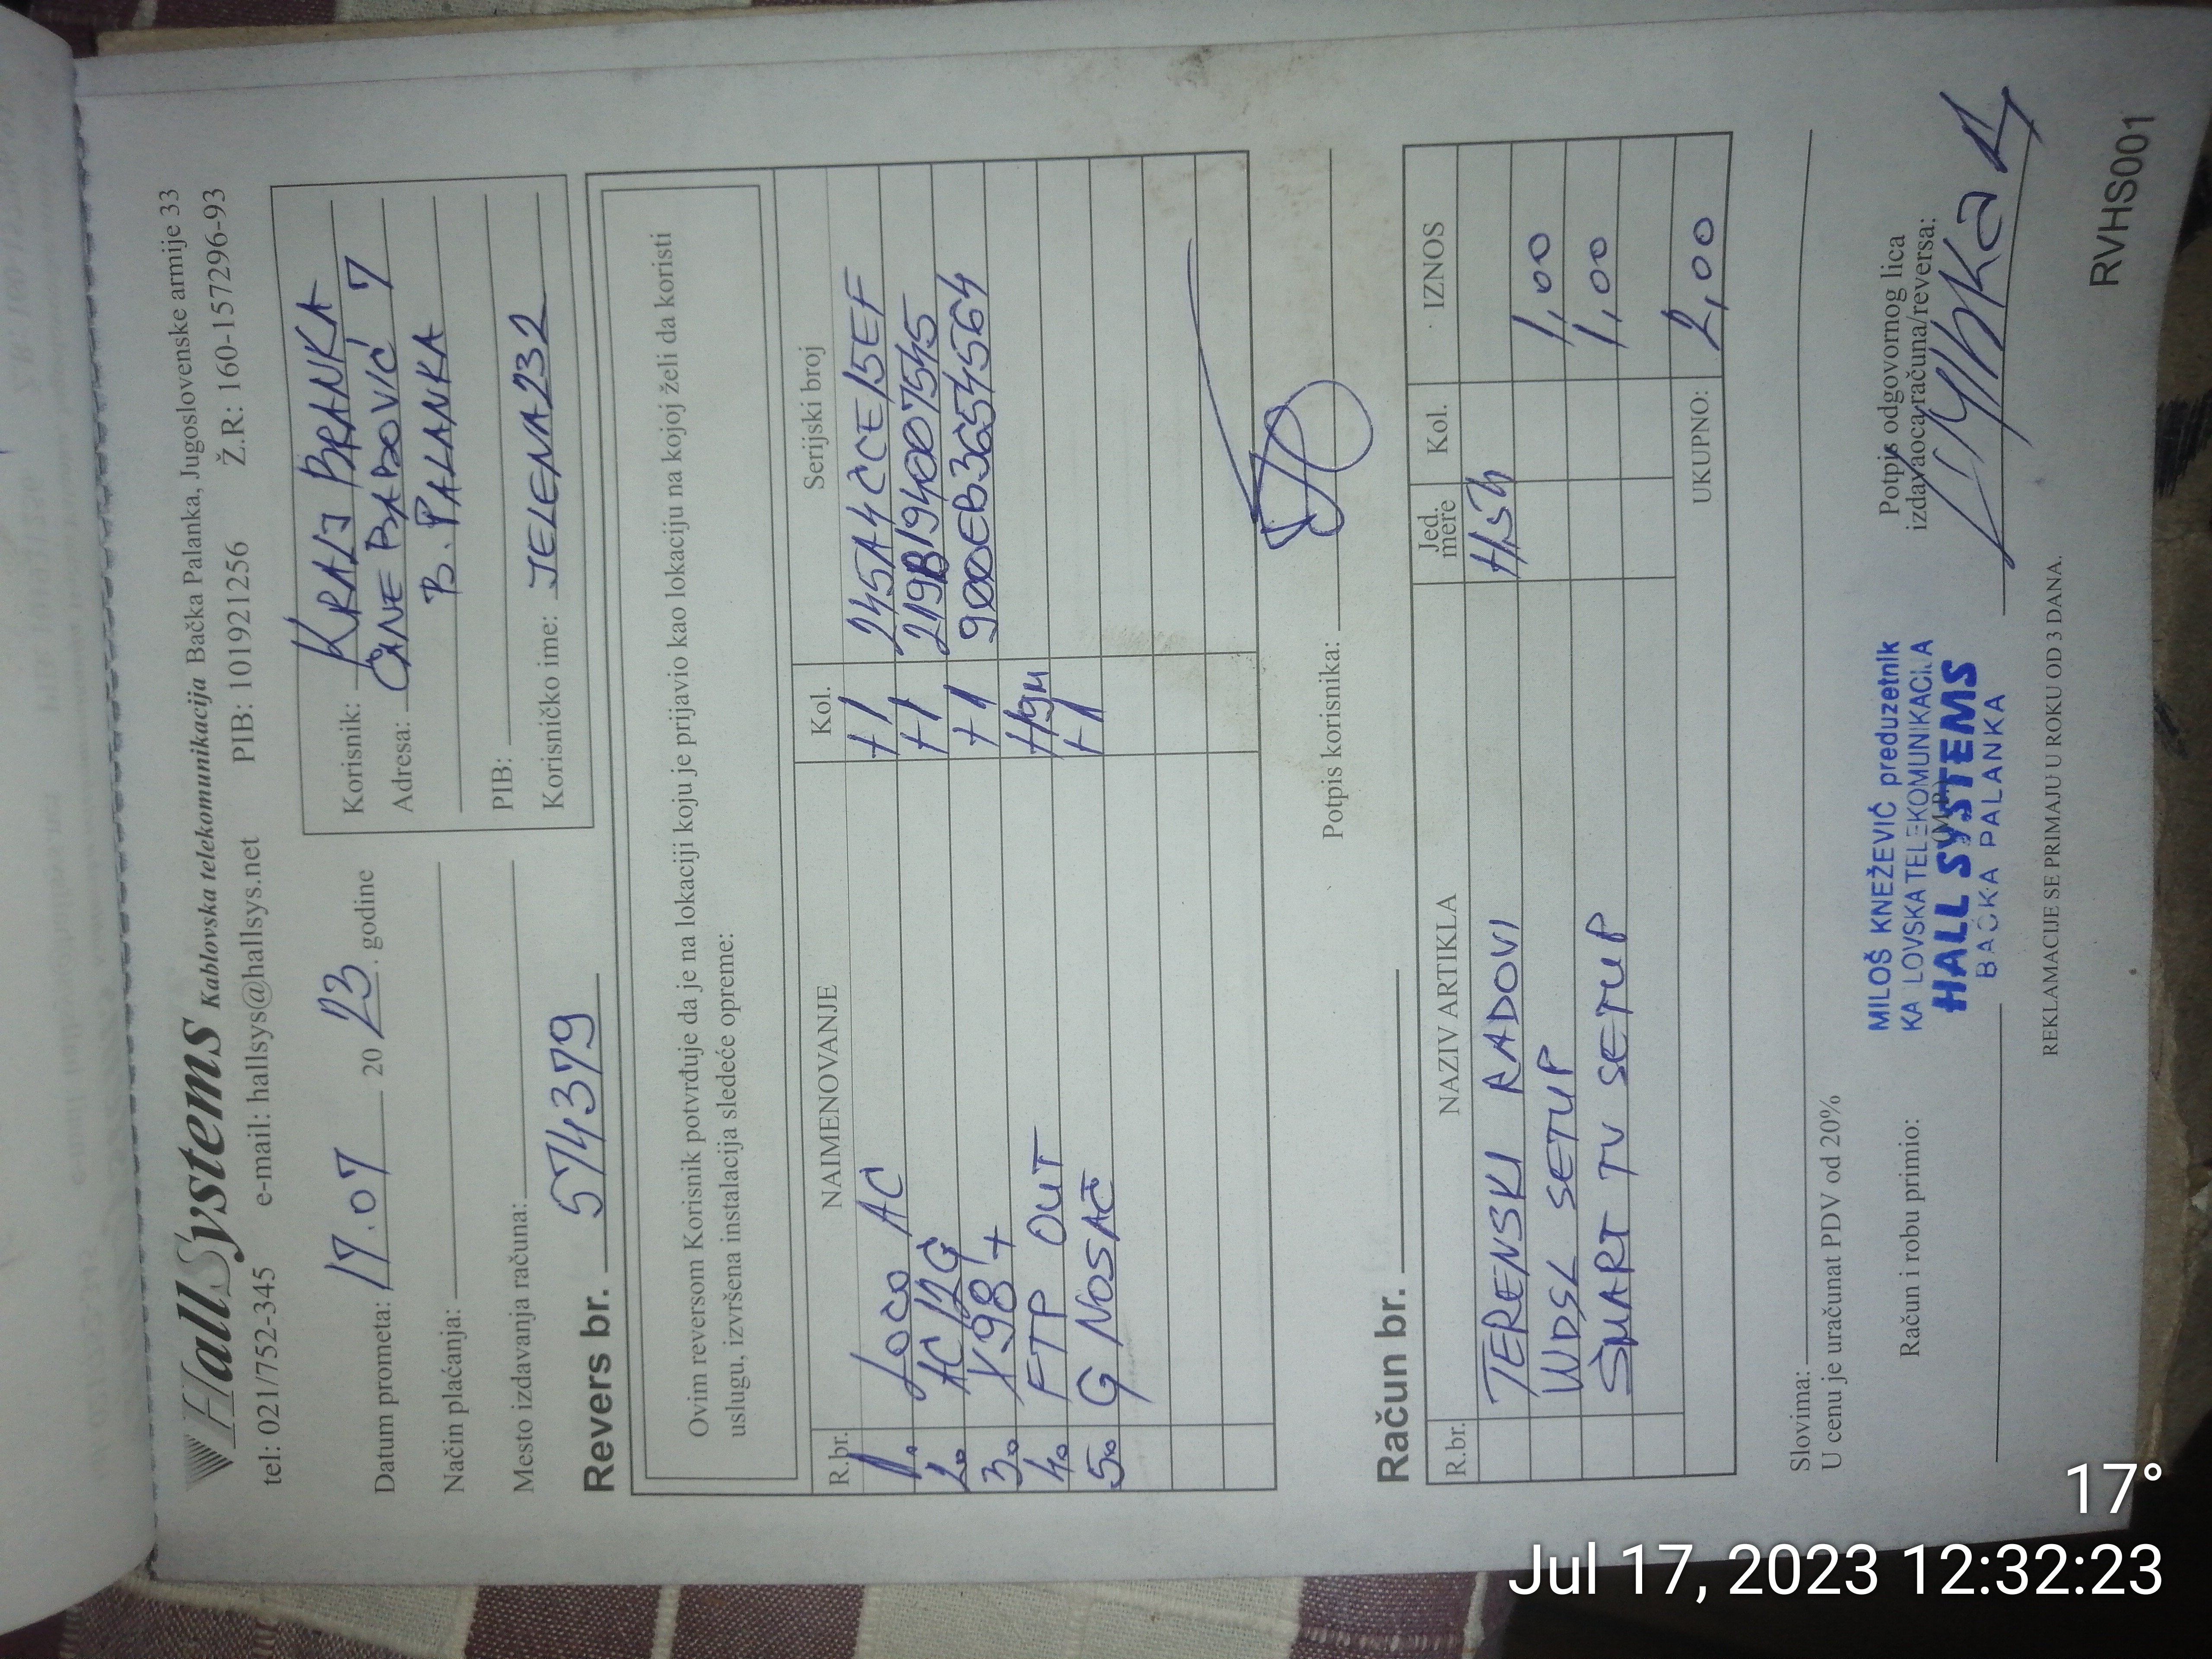 HallSystems Kablovska telekomunikacija Bačka Palanka, Jugoslovenske armije 33
tel: 021/752-345 e-mail: hallsys@hallsys.net PIB: 101921256 Ž.R: 160-157296-93
Datum prometa: 17.07 2023. godine
Način plaćanja:
Mesto izdavanja računa:
Korisnik: KRALJ BRANKA
Adresa: ČANE BABOVIĆ 7
B. PALANKA
PIB:
Korisničko ime: JELENA232
Revers br. 574379
Ovim reversom Korisnik potvrđuje da je na lokaciji koju je prijavio kao lokaciju na kojoj želi da koristi
uslugu, izvršena instalacija sledeće opreme:
R.br. NAIMENOVANJE Kol. Serijski broj
1. LOCO AC +1 245A4CCE15EF
2. AC12G +1 219B194007545
3. X98+ +1 900EB3654564
4. FTP OUT +19M
5. G NOSAČ +1
Potpis korisnika:
Račun br.
R.br. NAZIV ARTIKLA Jed. mere Kol. IZNOS
TERENSKI RADOVI
WDSL SETUP 1,00
SMART TV SETUP 1,00
UKUPNO: 2,00
Slovima:
U cenu je uračunat PDV od 20%
Račun i robu primio:
Potpis odgovornog lica
izdavaoca računa/reversa:
MILOŠ KNEŽEVIĆ preduzetnik
KA LOVSKA TELEKOMUNIKACIJA
HALL SYSTEMS
BAČKA PALANKA
REKLAMACIJE SE PRIMAJU U ROKU OD 3 DANA.
RVHS001
17°
Jul 17, 2023 12:32:23